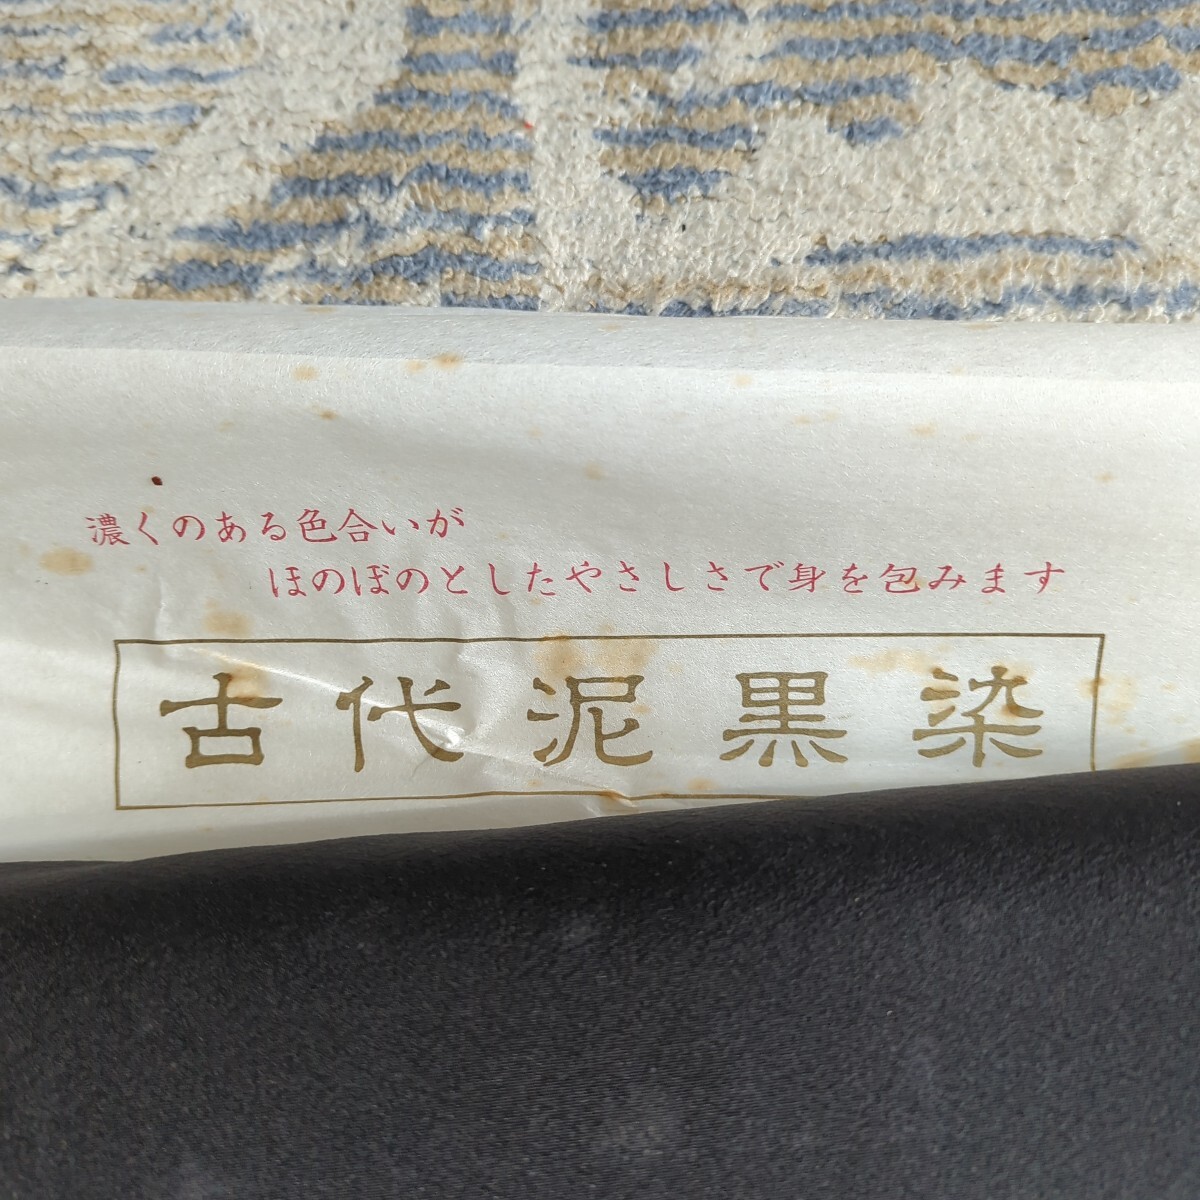 濃くのある色合いが
ほのぼのとしたやさしさで身を包みます
古代泥黒染